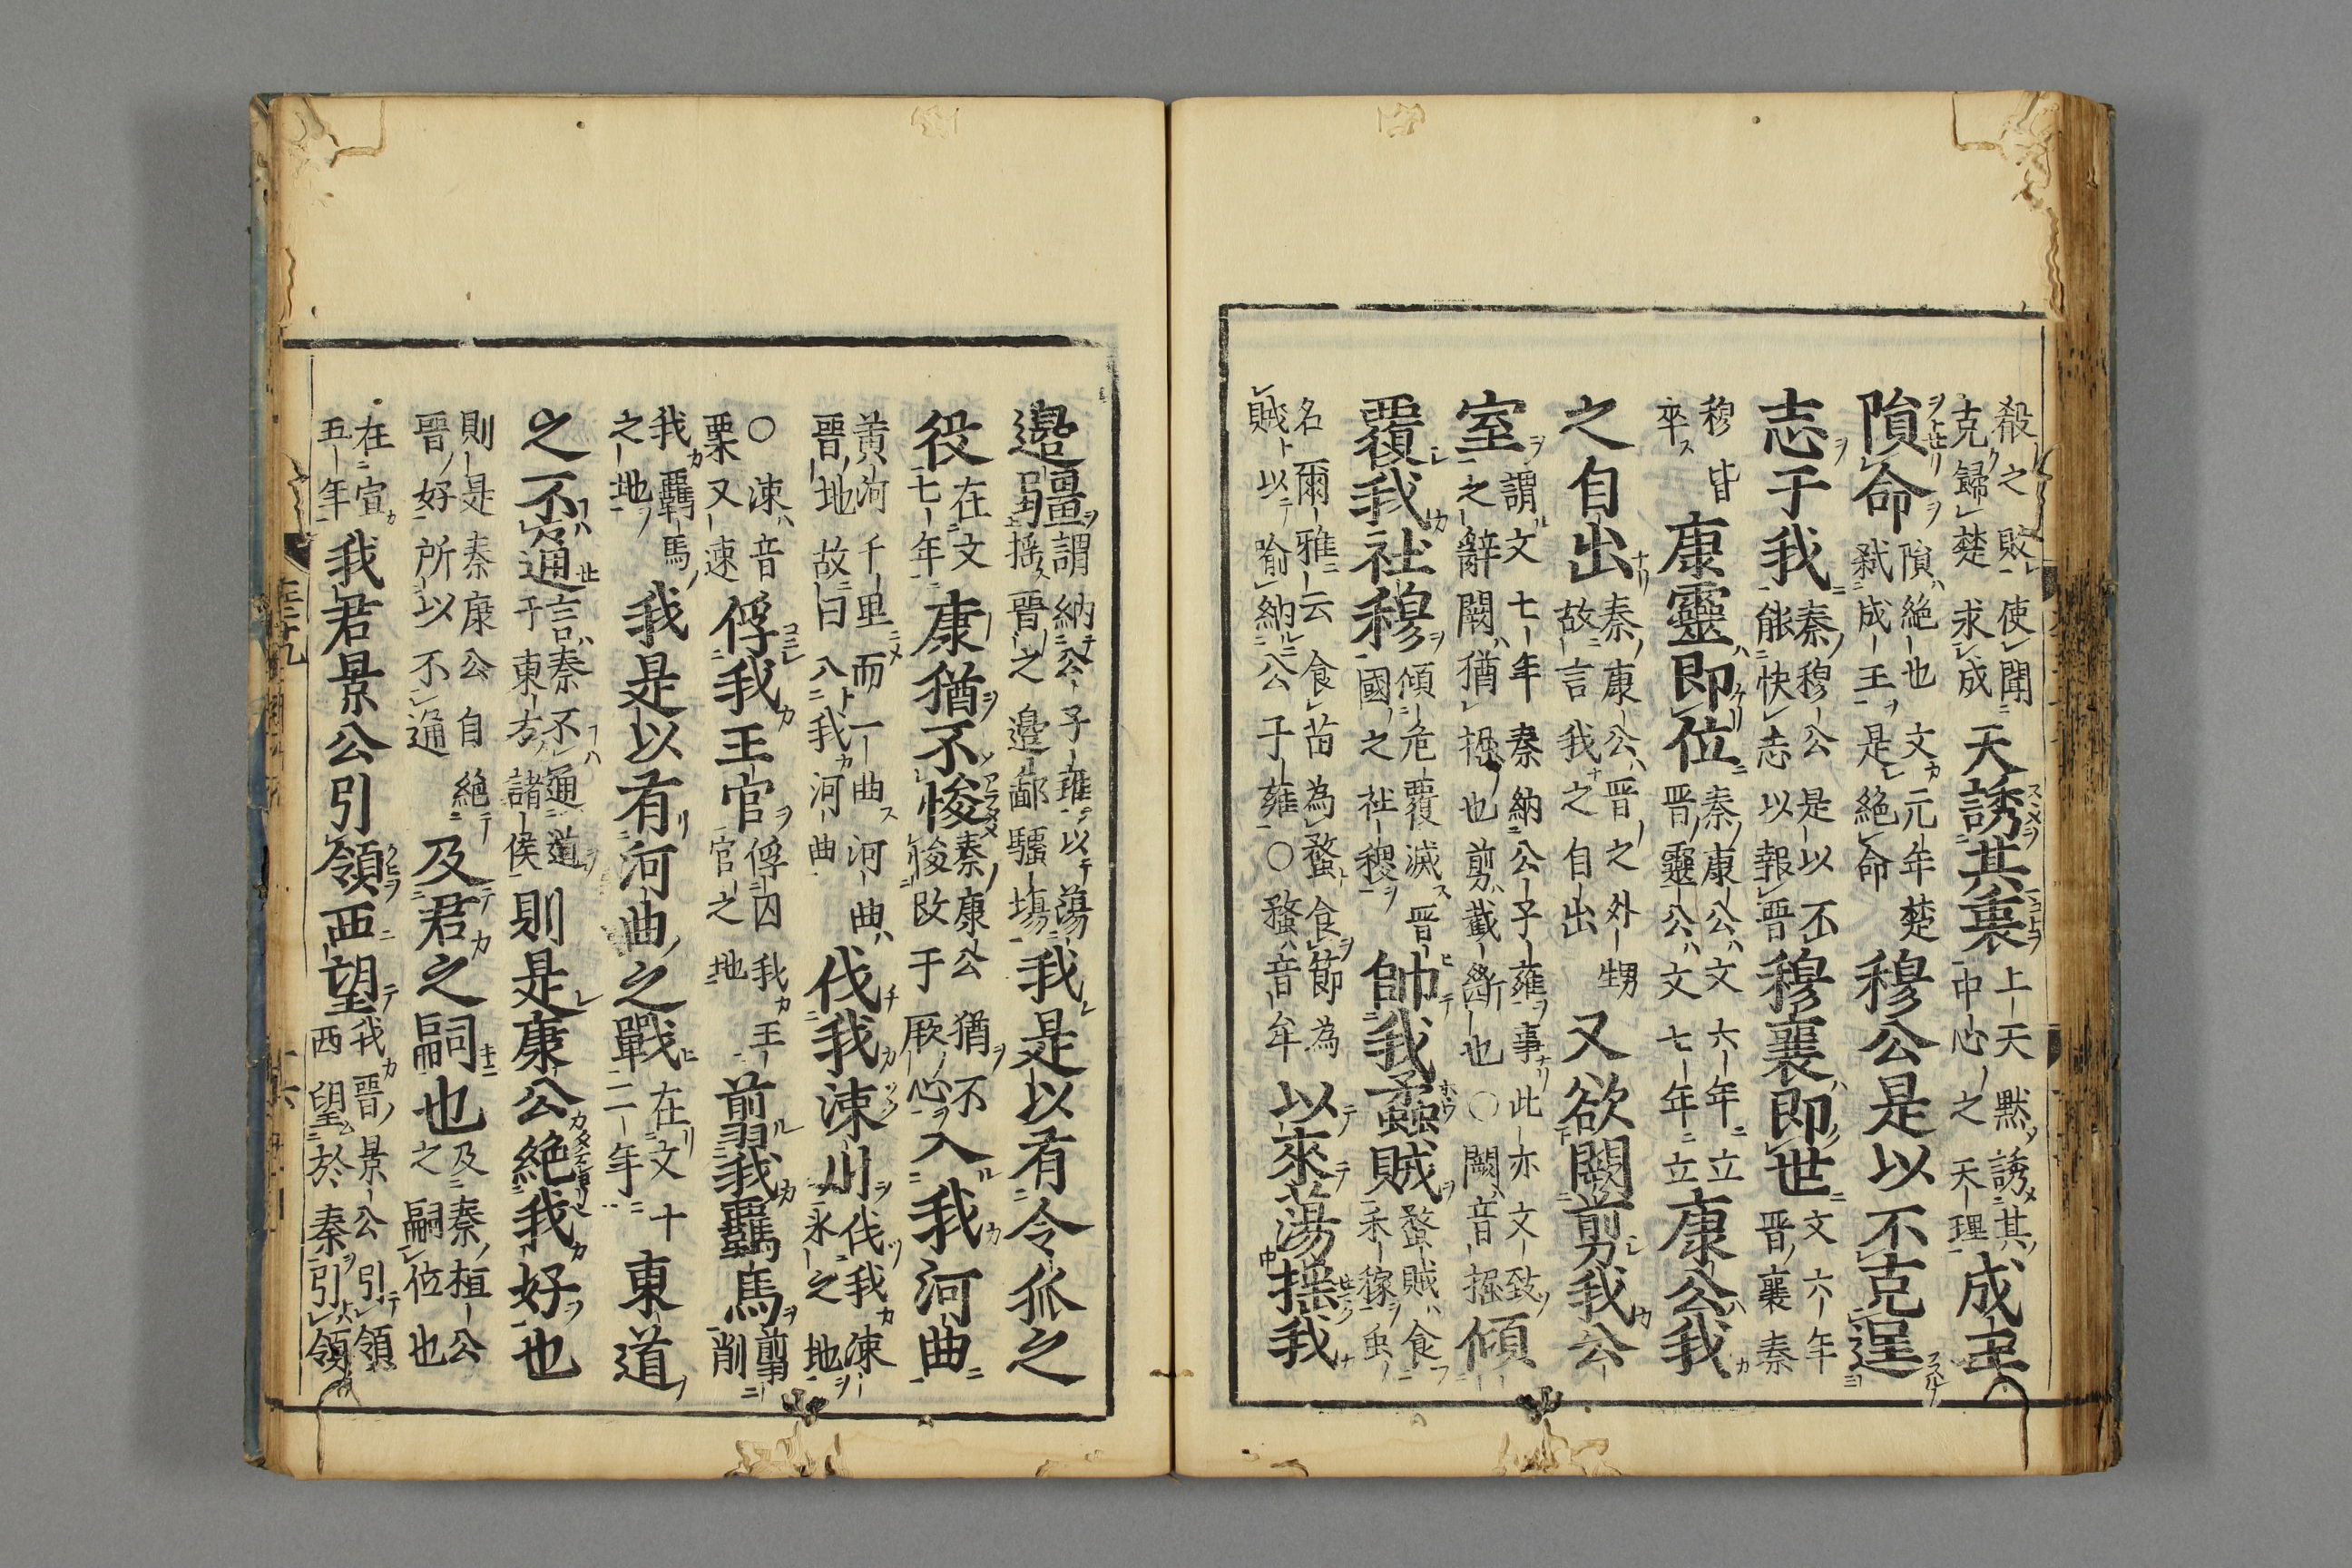 殺之敗使聞克歸楚求成天誘其衷上天黙誘其中心之天理成王
隕命隕絶也文元年楚弑成王是絶命穆公是以不克逞
志于我秦穆公是以不能快志以報晋穆襄即世文六年秦晋襄
穆卒皆康靈即位秦康公文六年立晋靈公文七年立康公我
之自出秦康公晋之外甥故言我之自出又欲闕剪我公
室謂文七年秦納公子雍事此亦文致之辭闕猶掘也剪截斷也○闕音掘傾
覆我社稷傾危覆滅晋國之社稷帥我蟊賊蝥賊食禾稼虫
名爾雅云食苗為蝥食節為賊以喻納公子雍○蝥音牟以來蕩揺我
邉疆謂納公子雍以蕩揺晋之邉鄙騷塲我是以有令狐之
役在文七年康猶不悛秦康公猶不悛改于厥心入我河曲
黄河千里而一曲河曲晋地故曰入我河曲伐我涑川伐我涑水之地
○涑音栗又速俘我王官俘囚我王官之地翦我羈馬翦削
我羈馬之地我是以有河曲之戰在文十二年東道
之不通言秦不通道于東方諸侯則是康公絶我好也
則是秦康公自絶晋好所以不通及君之嗣也及秦桓公之嗣位也
在宣五年我君景公引領西望我晋景公引領西望於秦引領